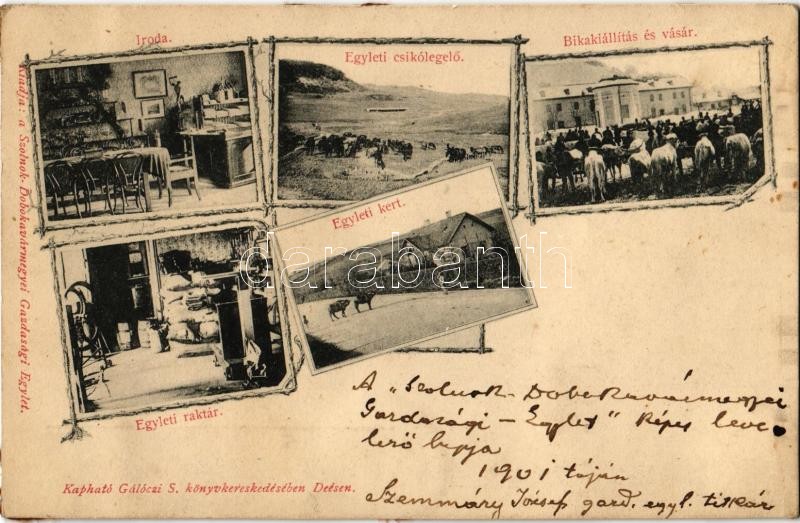 Iroda.
Egyleti csikólegelő.
Bikakiállítás és vásár.
Kiadja: a Szolnok-Dobokavármegyei Gazdasági Egylet.
Egyleti kert.
darabanth
Egyleti raktár.
A „Szolnok-Dobokavármegyei
Gazdasági-Egylet" képes leve-
lező lapja
1901 táján
Kapható Gálóczi S. könyvkereskedésében Deésen.
Szemmáry József gazd. egyl. titkár